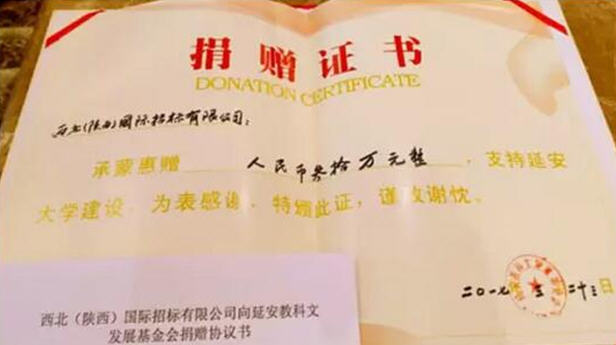 捐赠证书
DONATION CERTIFICATE
西北(陕西)国际招标有限公司:
承蒙惠赠 人民币叁拾万元整 ,支持延安
大学建设,为表感谢,特颁此证,谨致谢忱。
二〇一七 二十三日
西北（陕西）国际招标有限公司向延安教科文
发展基金会捐赠协议书